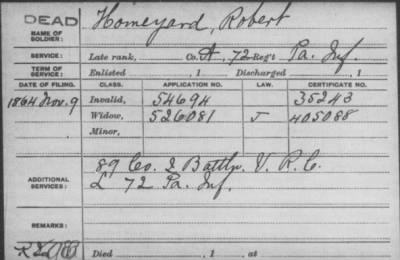 DEAD Homeyard, Robert
NAME OF SOLDIER:
SERVICE: Late rank, Co. A, 72 Reg't Pa. Inf.
TERM OF SERVICE: Enlisted , 1 Discharged , 1
DATE OF FILING. CLASS. APPLICATION NO. LAW. CERTIFICATE NO.
1864 Nov. 9 Invalid, 54694 35243
Widow, 526081 J 405088
Minor,
ADDITIONAL SERVICES: 89 Co. 2 Battln. V. R. C.
L 72 Pa. Inf.
REMARKS:
Died , 1 , at